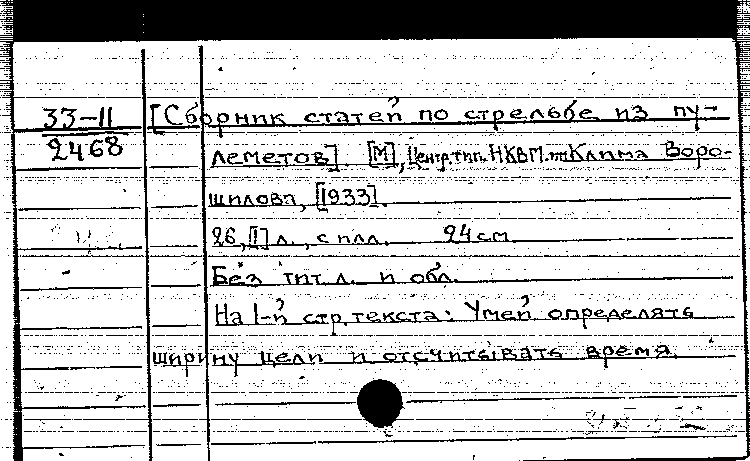 33-11
2468
[Сборник статей по стрельбе из пу-
леметов]. [М], Центр. тип. НКВМ. им Клима Воро-
шилова, [1933].
26, [1] л., с илл. 24 см.
Без тит. л. и обл.
На 1-й стр. текста: Умей определять
ширину цели и отсчитывать время.